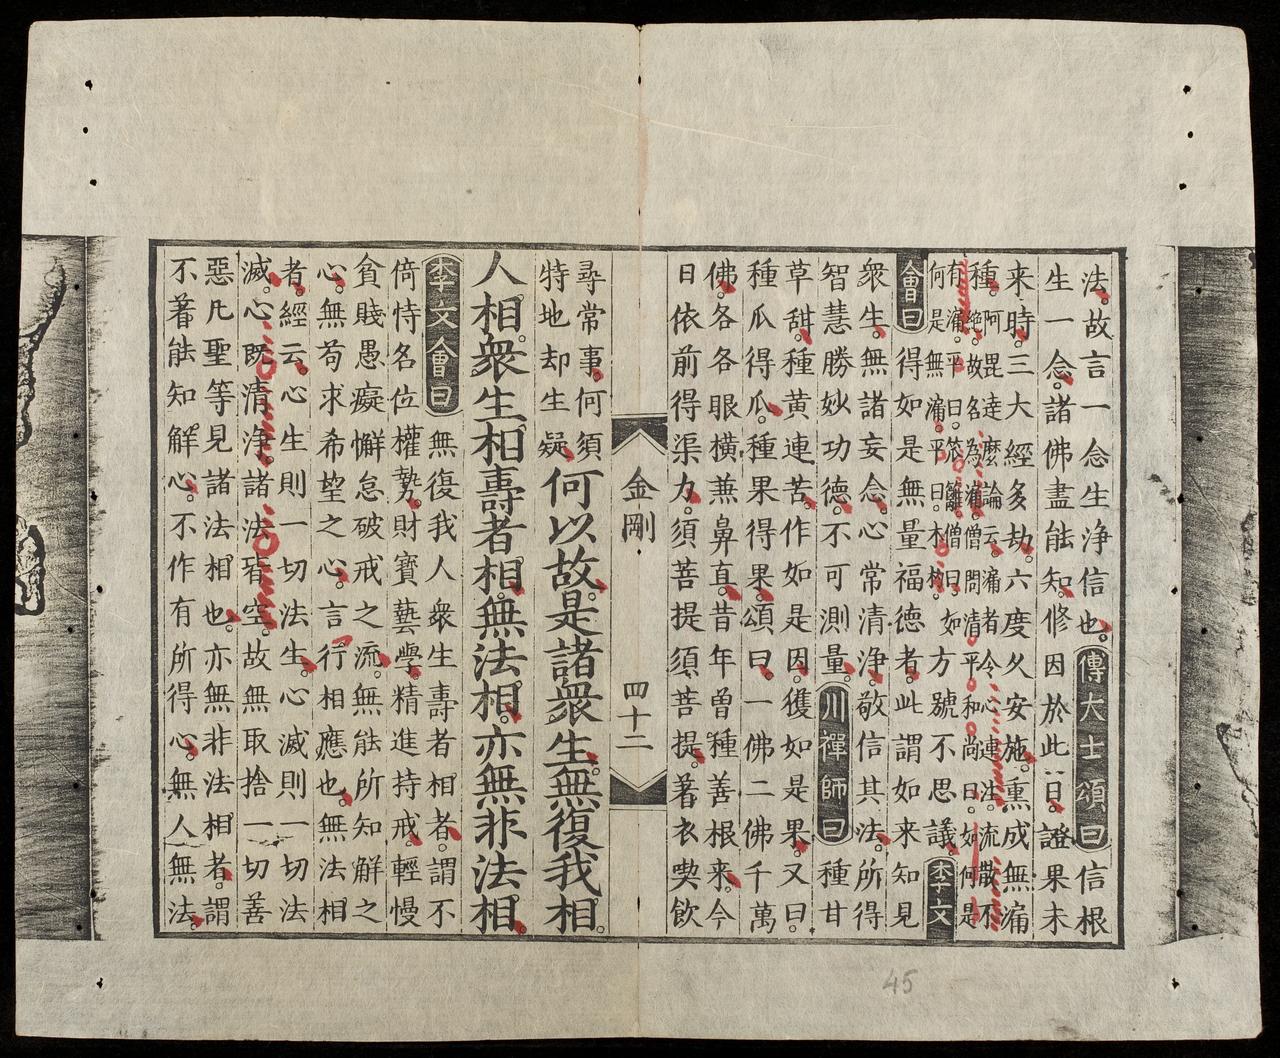 法。故言一念生浄信也。傳大士頌曰信根
生一念。諸佛盡能知。修因於此日。證果未
来時。三大經多劫。六度久安施。熏成無漏
種。阿毘達麼論云。漏者令心連注。流散不
絶。故名為漏。僧問清平和尚曰。如何是
有漏。平曰。笊籬。僧曰。如
何是無漏。平曰。木杓。方號不思議。李文
會曰得如是無量福德者。此謂如来知見
衆生。無諸妄念。心常清浄。敬信其法。所得
智慧勝妙功德。不可測量。川禪師曰種甘
草甜。種黄連苦。作如是因。獲如是果。又曰。
種瓜得瓜。種果得果。頌曰。一佛二佛千萬
佛。各各眼橫兼鼻直。昔年曾種善根来。今
日依前得渠力。須菩提須菩提。著衣喫飲
金剛 四十二
尋常事。何須
特地却生疑。何以故。是諸衆生。無復我相。
人相。衆生相。壽者相。無法相。亦無非法相。
李文會曰無復我人衆生壽者相者。謂不
倚恃名位權勢。財寶藝學。精進持戒。輕慢
貪賤愚癡懈怠破戒之流。無能所知解之
心。無苟求希望之心。言行相應也。無法相
者。經云。心生則一切法生。心滅則一切法
滅。心既清浄。諸法皆空。故無取捨一切善
惡凡聖等見諸法相也。亦無非法相者。謂
不著能知解心。不作有所得心。無人無法。
45